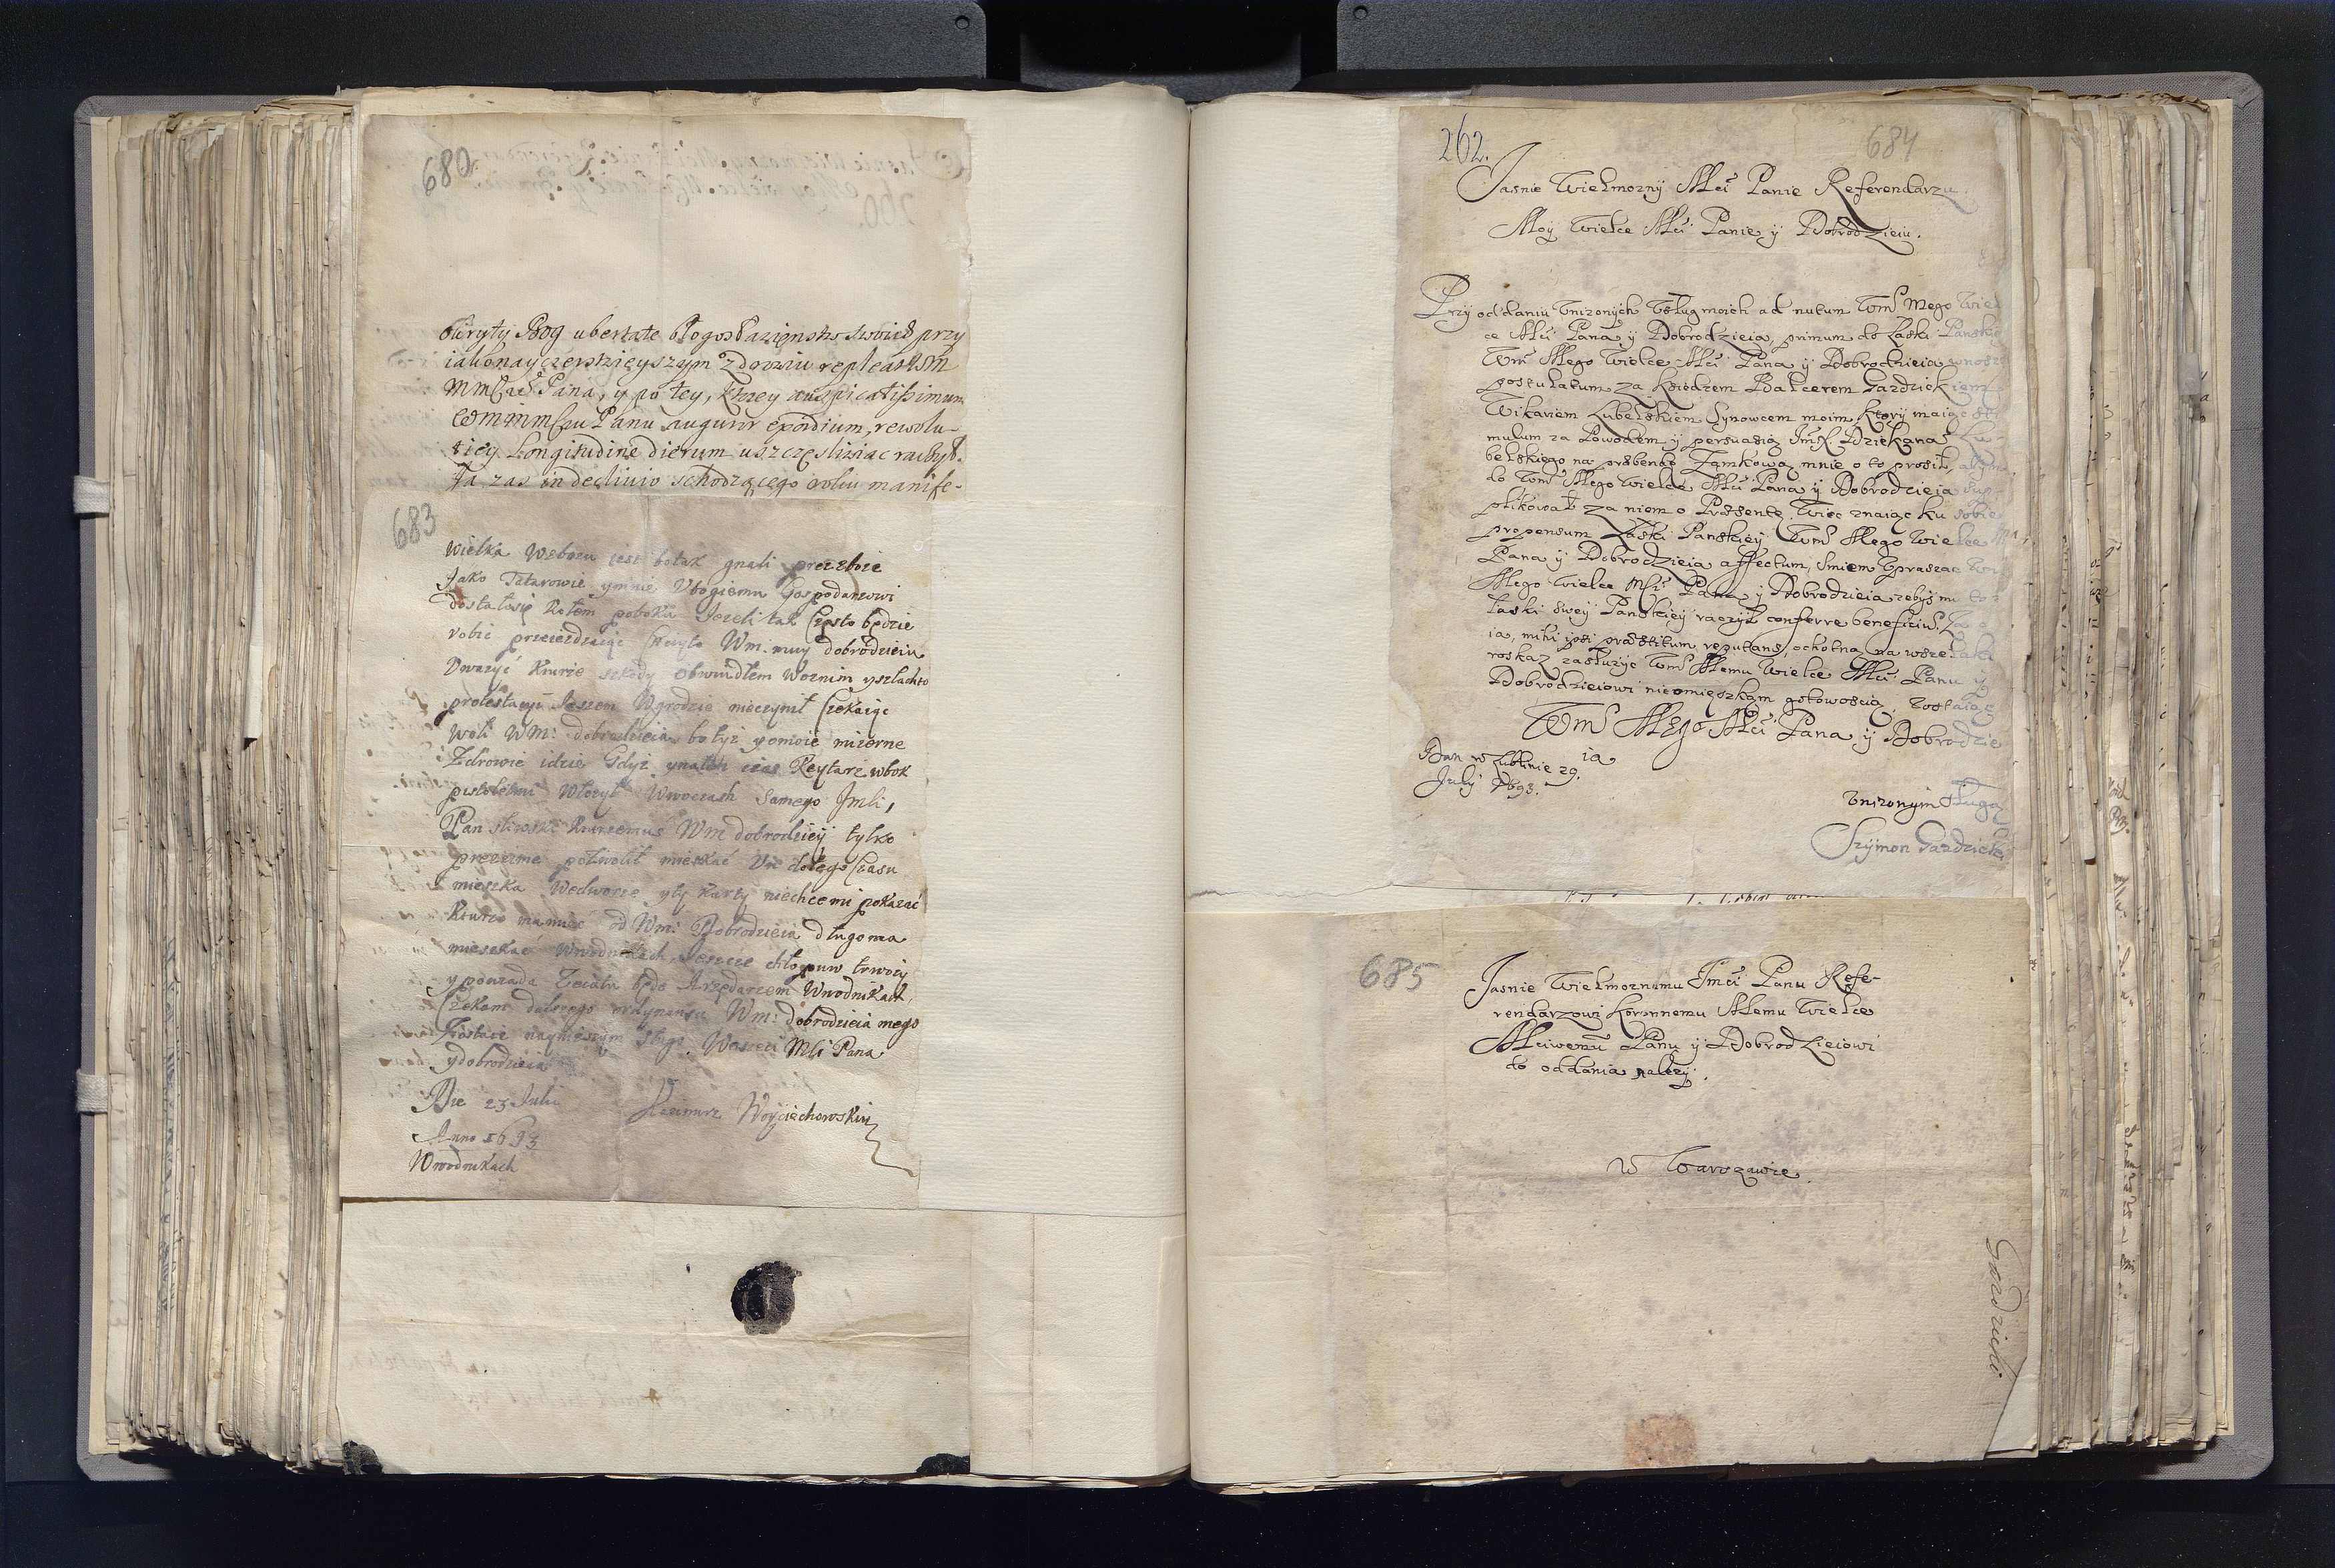 680.
obfityi Bog ubertate błogosławienstw swoich przy
iaknayczerstwieyszym zdrowiu repleat WM
MMści Pana, y po tey, ktorey auspicatissimum
WMMMściu Panu auguror exordium, rewolu-
tiey Longitudine dierum uszczęsliwiac raczył.
Ja zas in declivio schodzącego roku manife-
683
wielka wzboru iest bo tak gnali przez
Jako Tatarowie y mnie Vbogiemu Gospodarzowi
dostało się Kołem poboku Jezeli tak Często będzie
robic przeiezdzaiąc Chciey to Wm. muy dobrodzieiu
Vwazyć Kturie szkody obwiodłem Woznim y szlachto
protestacyi Jeszem Wgrodzie nieczynił Czekaiąc
woli WM: dobrodzieia bo tyz y omoie mizerne
Zdrowie idzie Gdyz ynaten czas Reytarz wbok
pistoletmi włozył Wwoczach Samego Jmści,
Pan sliwski Kturemus Wm dobrodziey tylko
przezime pozwolił mieszkać Vze dotego Czasu
mieszka Wedworze yty karty niechce mi pokazać
Kturą mamieć od Wm: Dobrodzieia długo ma
mieszkać Wwodnikach, Jeszcze chłopuw trwozy
y powiada Zeia tu będe Arędarzem Wwodnikach,
Czekam dalszego ordynansu Wm: dobrodzieia mego
Zostaie naynizszym Sługą Waszeci Mści Pana
ydobrodzieia
Die 23 Julii Kazimierz Woyciechowski
Anno 1693
Wwodnikach
262. 684
Jasnie Wielmozny Mści Panie Referendarzu
Moy Wielce Mści Panie y Dobrodzieiu.
Przy oddaniu Vnizonych Vsług moich ad nutum WMś Mego Wiel
ce Mści Pana y Dobrodzieia, primum do Łaski Panskiey
WMś Mego Wielce Mści Pana y Dobrodzieia wnosze
postulatum za Xiedzem Balcerem Gazdzickiem
Wikariem Lubelskiem Synowcem moim, ktory maiąc sti
mulum za Powodem y persuasią JmśX Dziekana Lu-
belskiego na præbende Zamkową mnie o to prosił, abym
do WMś Mego Wielce Mści Pana y Dobrodzieia sup-
plikował za niem o Præsente. Wiec znaiąc ku sobie
propensum Łaski Panskiey WMś Mego Wielce Mści
Pana y Dobrodzieia affectum, smiem Vpraszac WMś
Mego Wielce Mści Pana y Dobrodzieia zebys mu to z
Łaski Swey Panskiey raczył conferre beneficiũ. Za co
ia, mihi ipsi præstitum reputans, ochotną na wszelaki
roskaz zasłuzyc WMś Memu Wielce Mści Panu y
Dobrodzieiowi nieomięszkam gotowoscią, zostaiąc
WMś Mego Mści Pana y Dobrodzie
ia
Dan w Lublinie 29.
July 1693.
Vnizonym Sługą
Szymon Gazdzicki
685
Jasnie Wielmoznemu Jmści Panu Refe-
rendarzowi Koronnemu Memu Wielce
Mściwemu Panu y Dobrodzieiowi
do oddania nalezy.
w Warszawie.
Gazdzicki